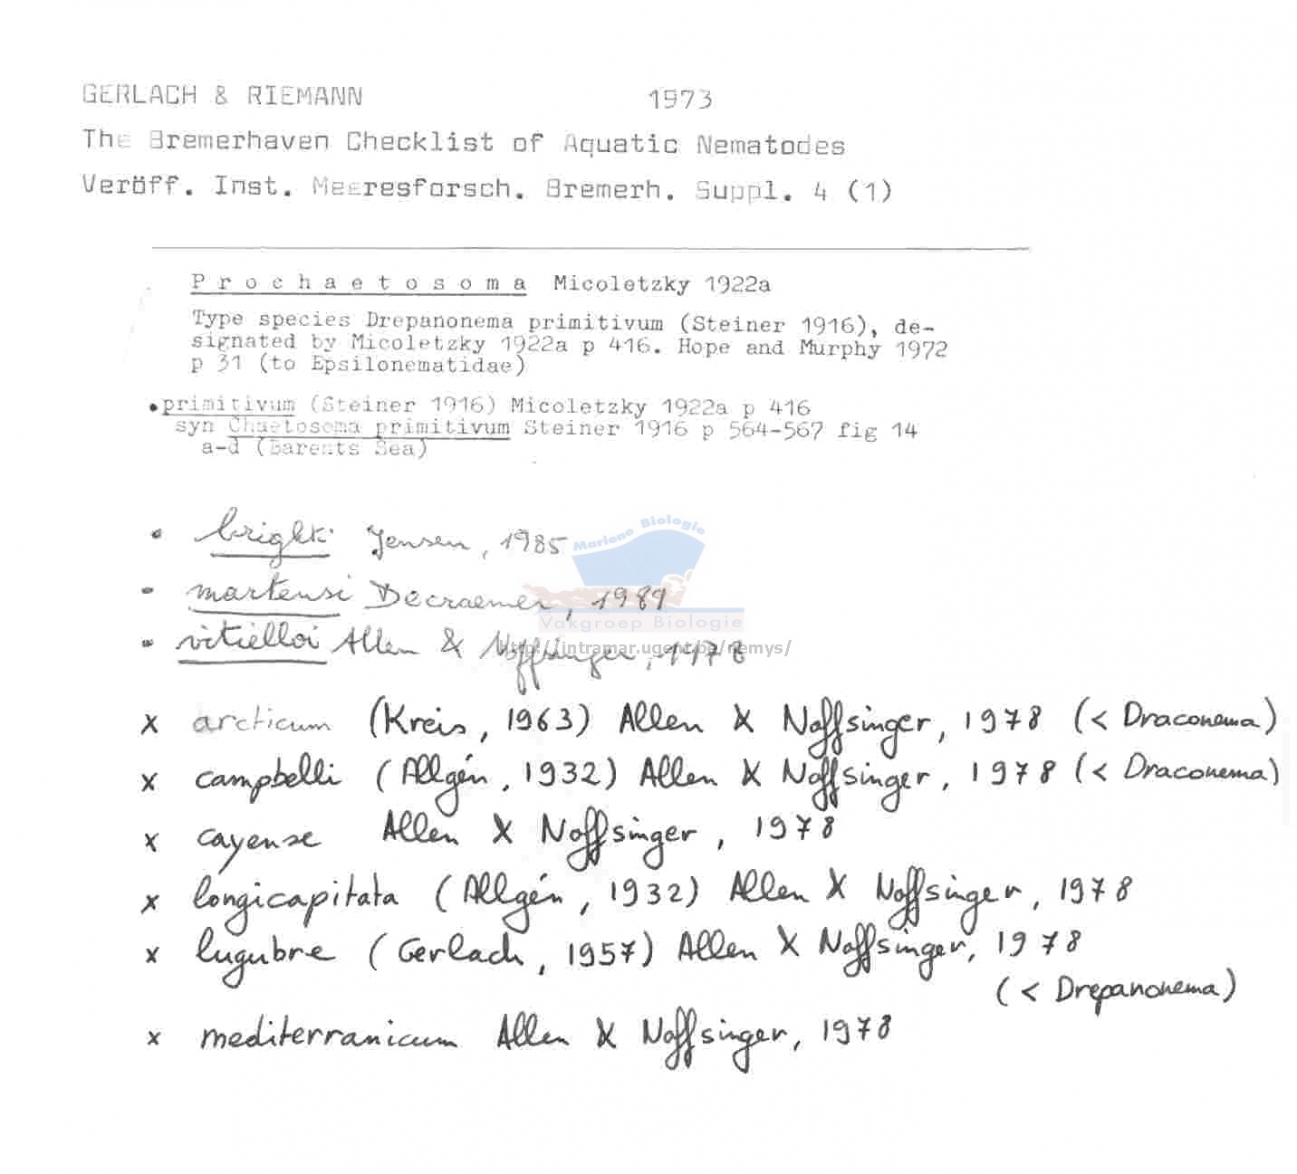 GERLACH & RIEMANN 1973
The Bremerhaven Checklist of Aquatic Nematodes
Veröff. Inst. Meeresforsch. Bremerh. Suppl. 4 (1)
Prochaetosoma Micoletzky 1922a
Type species Drepanonema primitivum (Steiner 1916), de-
signated by Micoletzky 1922a p 416. Hope and Murphy 1972
p 31 (to Epsilonematidae)
•primitivum (Steiner 1916) Micoletzky 1922a p 416
syn Chaetosoma primitivum Steiner 1916 p 564-567 fig 14
a-d (Barents Sea)
• brighti Jensen, 1985
Mariene Biologie
- martensi Decraemer, 1989
Vakgroep Biologie
- vitielloi Allen & Noffsinger, 1978
http://intramar.ugent.be/nemys/
x arcticum (Kreis, 1963) Allen & Noffsinger, 1978 (< Draconema)
x campbelli (Allgén, 1932) Allen & Noffsinger, 1978 (< Draconema)
x cayense Allen & Noffsinger, 1978
x longicapitata (Allgén, 1932) Allen & Noffsinger, 1978
x lugubre (Gerlach, 1957) Allen & Noffsinger, 1978
(< Drepanonema)
x mediterranicum Allen & Noffsinger, 1978